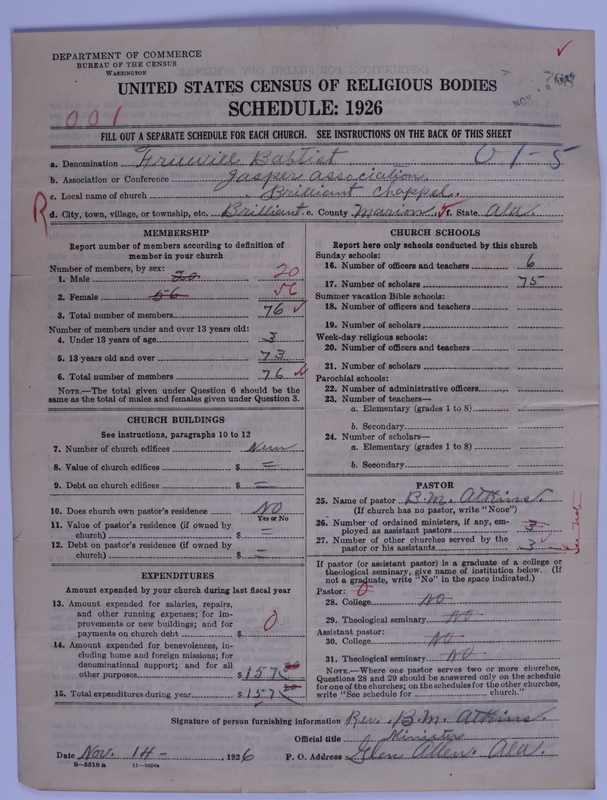 DEPARTMENT OF COMMERCE
BUREAU OF THE CENSUS
WASHINGTON
UNITED STATES CENSUS OF RELIGIOUS BODIES
SCHEDULE: 1926
NOV
001
FILL OUT A SEPARATE SCHEDULE FOR EACH CHURCH. SEE INSTRUCTIONS ON THE BACK OF THIS SHEET
a. Denomination Freewill Baptist
01-5
b. Association or Conference Jasper Association
c. Local name of church Brilliant Chappel.
R
d. City, town, village, or township, etc. Brilliant. e. County Marion, f. State Ala.
MEMBERSHIP
Report number of members according to definition of member in your church
Number of members, by sex:
1. Male 20 20
2. Female 56 56
3. Total number of members 76
Number of members under and over 13 years old:
4. Under 13 years of age 3
5. 13 years old and over 73
6. Total number of members 76
NOTE.—The total given under Question 6 should be
same as the total of males and females given under Question 3.
CHURCH BUILDINGS
See instructions, paragraphs 10 to 12
7. Number of church edifices Nun
8. Value of church edifices $ =
9. Debt on church edifices $ =
10. Does church own pastor's residence No
Yes or No
11. Value of pastor's residence (if owned by
church) $ =
12. Debt on pastor's residence (if owned by
church) $ =
EXPENDITURES
Amount expended by your church during last fiscal year
13. Amount expended for salaries, repairs,
and other running expenses; for im-
provements or new buildings; and for
payments on church debt $ 0
14. Amount expended for benevolences, in-
cluding home and foreign missions; for
denominational support; and for all
other purposes $
15. Total expenditures during year $
CHURCH SCHOOLS
Report here only schools conducted by this church
Sunday schools:
16. Number of officers and teachers 6
17. Number of scholars 75
Summer vacation Bible schools:
18. Number of officers and teachers
19. Number of scholars
Week-day religious schools:
20. Number of officers and teachers
21. Number of scholars
Parochial schools:
22. Number of administrative officers
23. Number of teachers—
a. Elementary (grades 1 to 8)
b. Secondary
24. Number of scholars—
a. Elementary (grades 1 to 8)
b. Secondary
PASTOR
25. Name of pastor B.M. Atkins.
(If church has no pastor, write "None")
26. Number of ordained ministers, if any, em-
ployed as assistant pastors
27. Number of other churches served by the
pastor or his assistants 3
If pastor (or assistant pastor) is a graduate of a college or
theological seminary, give name of institution below. (If
not a graduate, write "No" in the space indicated.)
Pastor: 0
28. College No
29. Theological seminary No
Assistant pastor:
30. College No
31. Theological seminary No
NOTE.—Where one pastor serves two or more churches,
Questions 28 and 29 should be answered only on the schedule
for one of the churches; on the schedules for the other churches,
write "See schedule for church."
Signature of person furnishing information Rev. B.M. Atkins.
Official title Minister
Date Nov. 14-, 1926 P. O. Address Glen Allen. Ala.
8—5518a 11—5054a